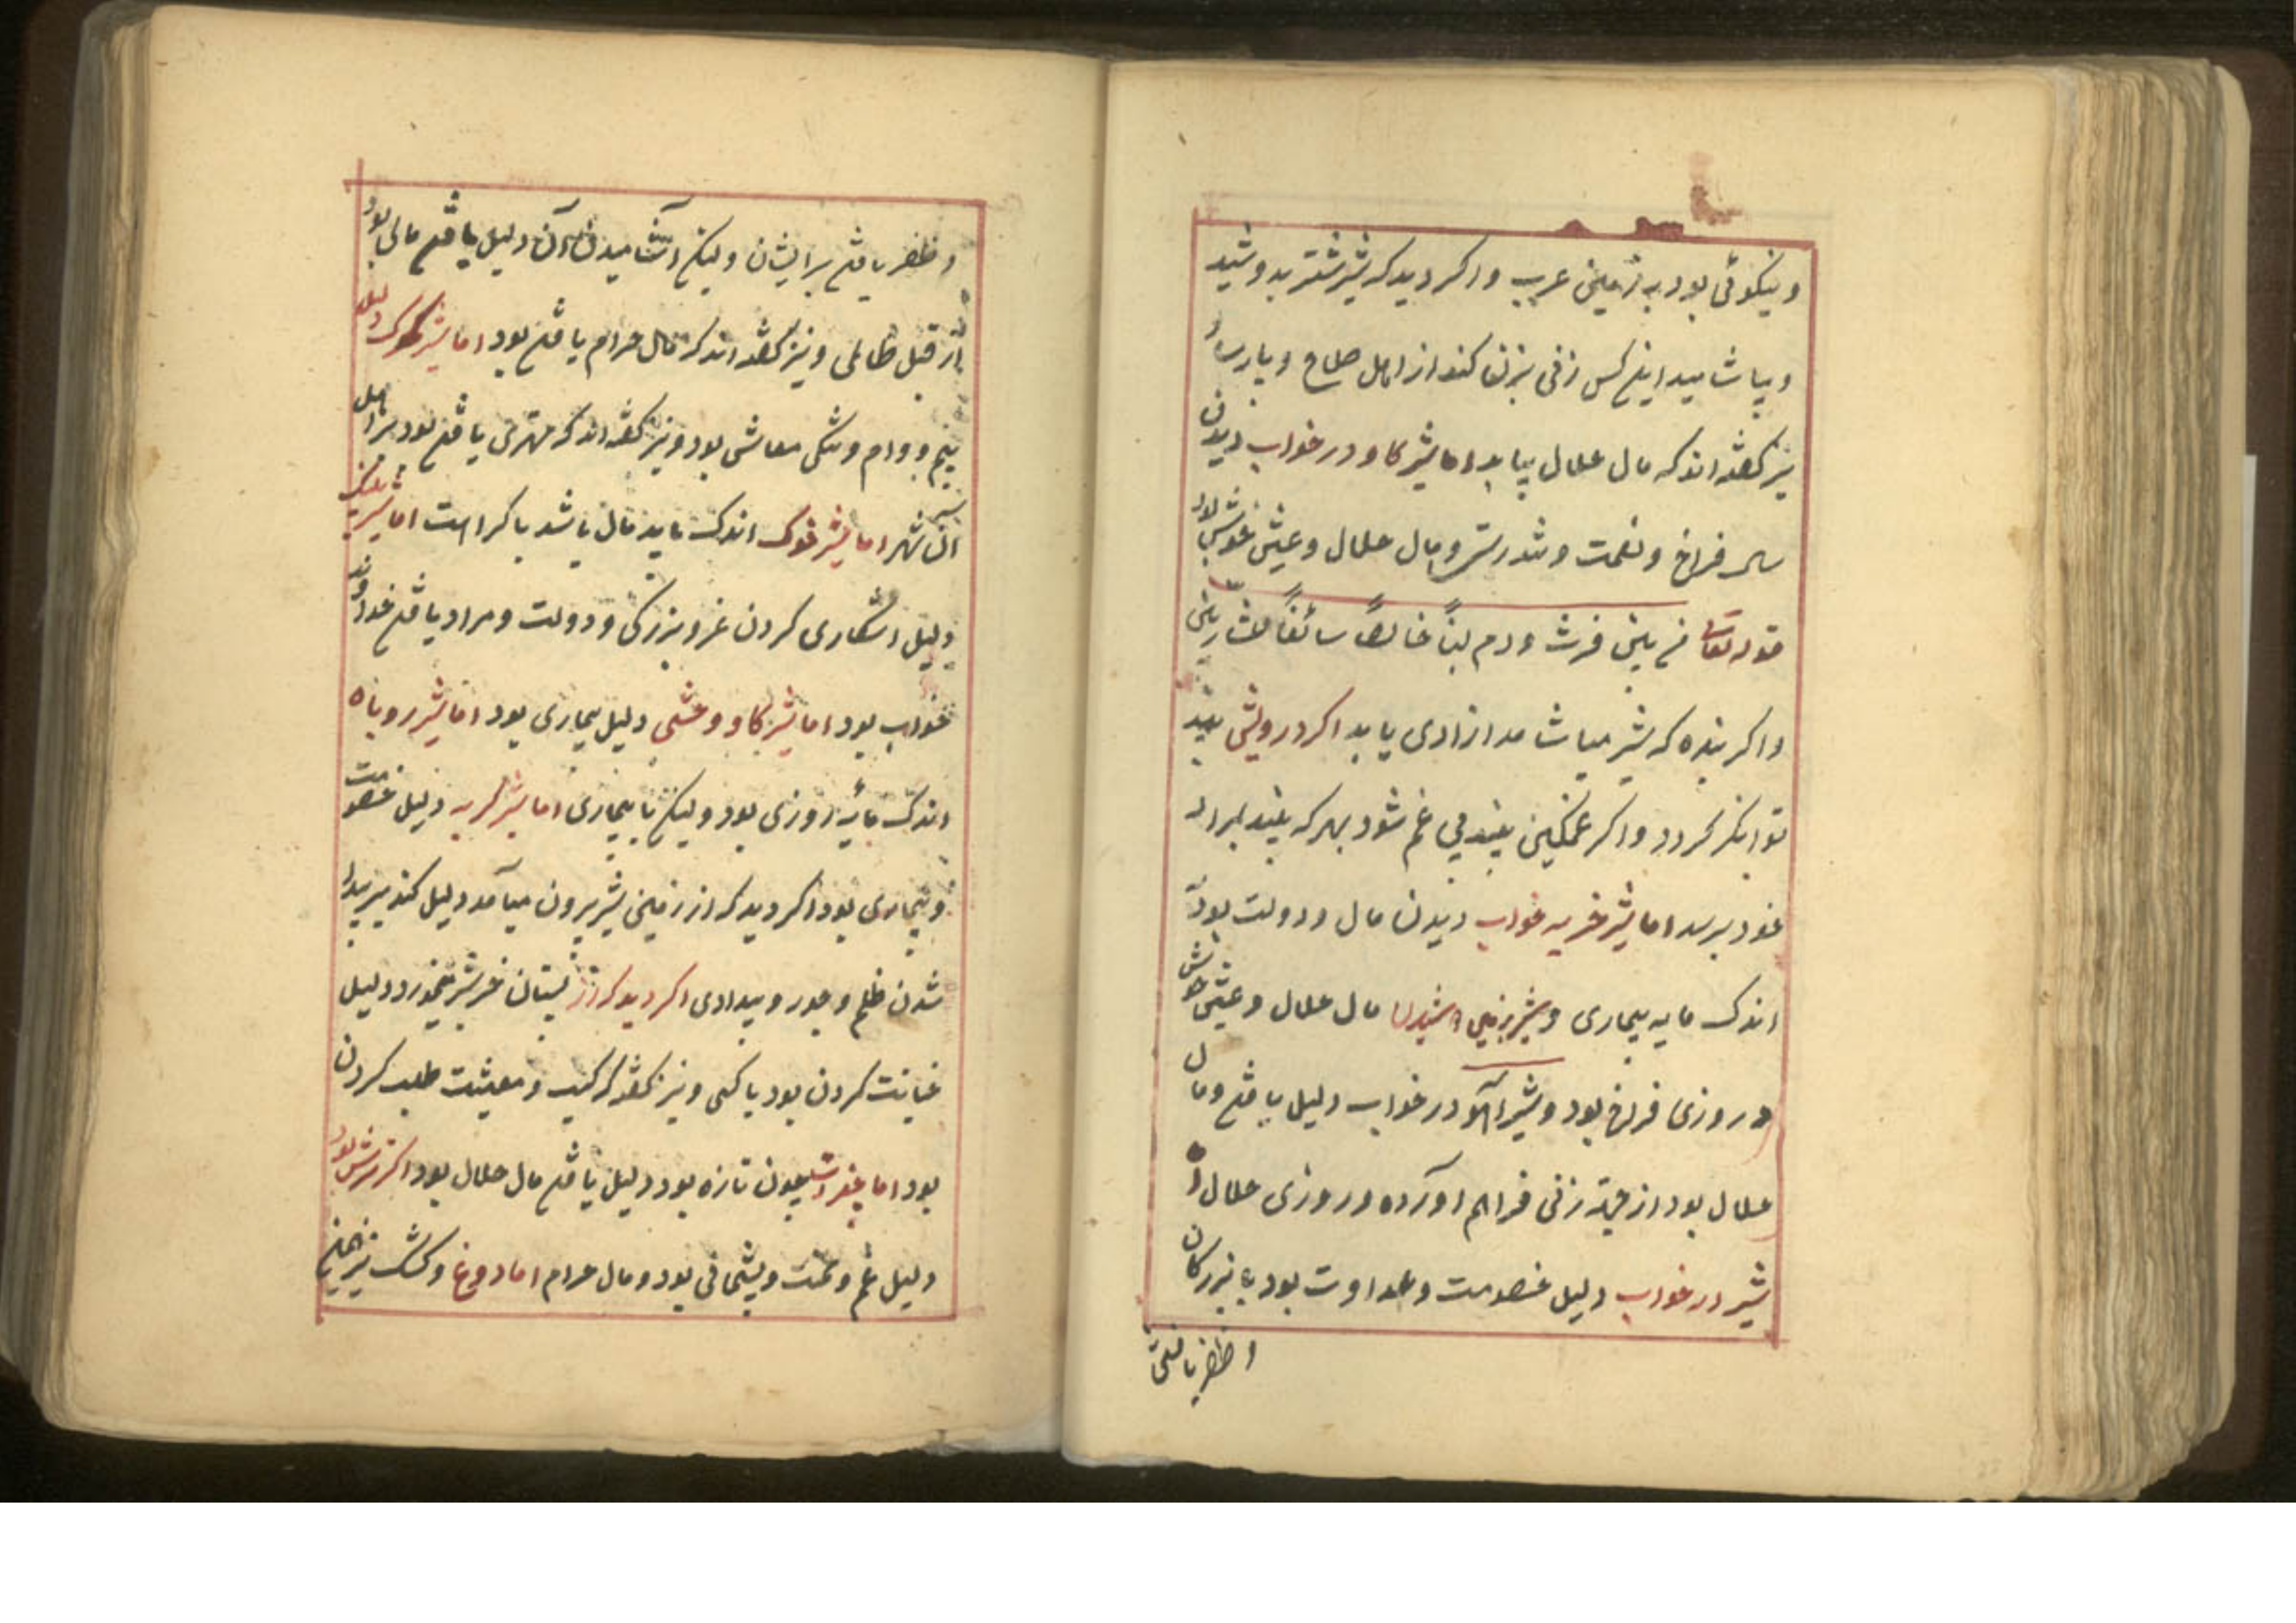 و نیکوئی بود به زمین عرب و اکر دید که شیر شتر بدوشید
و بیاشامید اینکس زنی بزنی کند از اهل صلاح و پارسا و
نیز کفته اند که مال حلال بیابد اما شیر کاو در خواب دیدن
سال فراخ و نعمت و تندرستی و مال حلال و عیش خوش بود
قوله تعالی من بین فرث و دم لبناً خالصاً سائغاً للشاربین
و اکر بنده که شیر میاشامد ازادی یابد اکر درویش بیند
توانکر کردد و اکر غمکین بیند بی غم شود بهر که بیند بمراد
خود برسد اما شیر خر به خواب دیدن مال و دولت بود
اندک مایه بیماری و شیر مال حلال و عیش خوش
و روزی فراخ بود و شیر اهو در خواب دلیل یافتن و مال
حلال بود از جهة زنی فراهم اورده و روزی حلال و
شیر در خواب دلیل خصومت و عداوت بود با بزرکان
و ظفر یافتن
و ظفر یافتن برایشان ولیکن آشامیدن آن دلیل یافتن مالی بود
از قبل ظالمی و نیز کفته اند که مال حرام یافتن بود اما شیر کرک دلیل
بیم و وام و تنکی معاشی بود و نیز کفته اند که مهتری یافتن بود بر اهل
ان شهر اما شیر خوک اندک مایه مال باشد با کراهت اما شیر پلنک
دلیل اشکاری کردن عز و بزرکی و دولت و مراد یافتن خداوند
خواب بود اما شیر کاو وحشی دلیل بیماری بود اما شیر روباه
اندک مایه روزی بود ولیکن با بیماری اما شیر کربه دلیل خصومت
و بیماری بود اکر دید که از زمین شیر بیرون میآمد دلیل کند بر پیدا
شدن ظلم و جور و بیدادی اکر دید که از پستان خر شیر میخورد دلیل
خیانت کردن بود با کسی و نیز کفته که کسب و معیشت طلب کردن
بود اما چون تازه بود دلیل یافتن مال حلال بود اکر ترش بود
دلیل غم و محنت و پشیمانی بود و مال حرام اما دوغ و کشک نیز همین